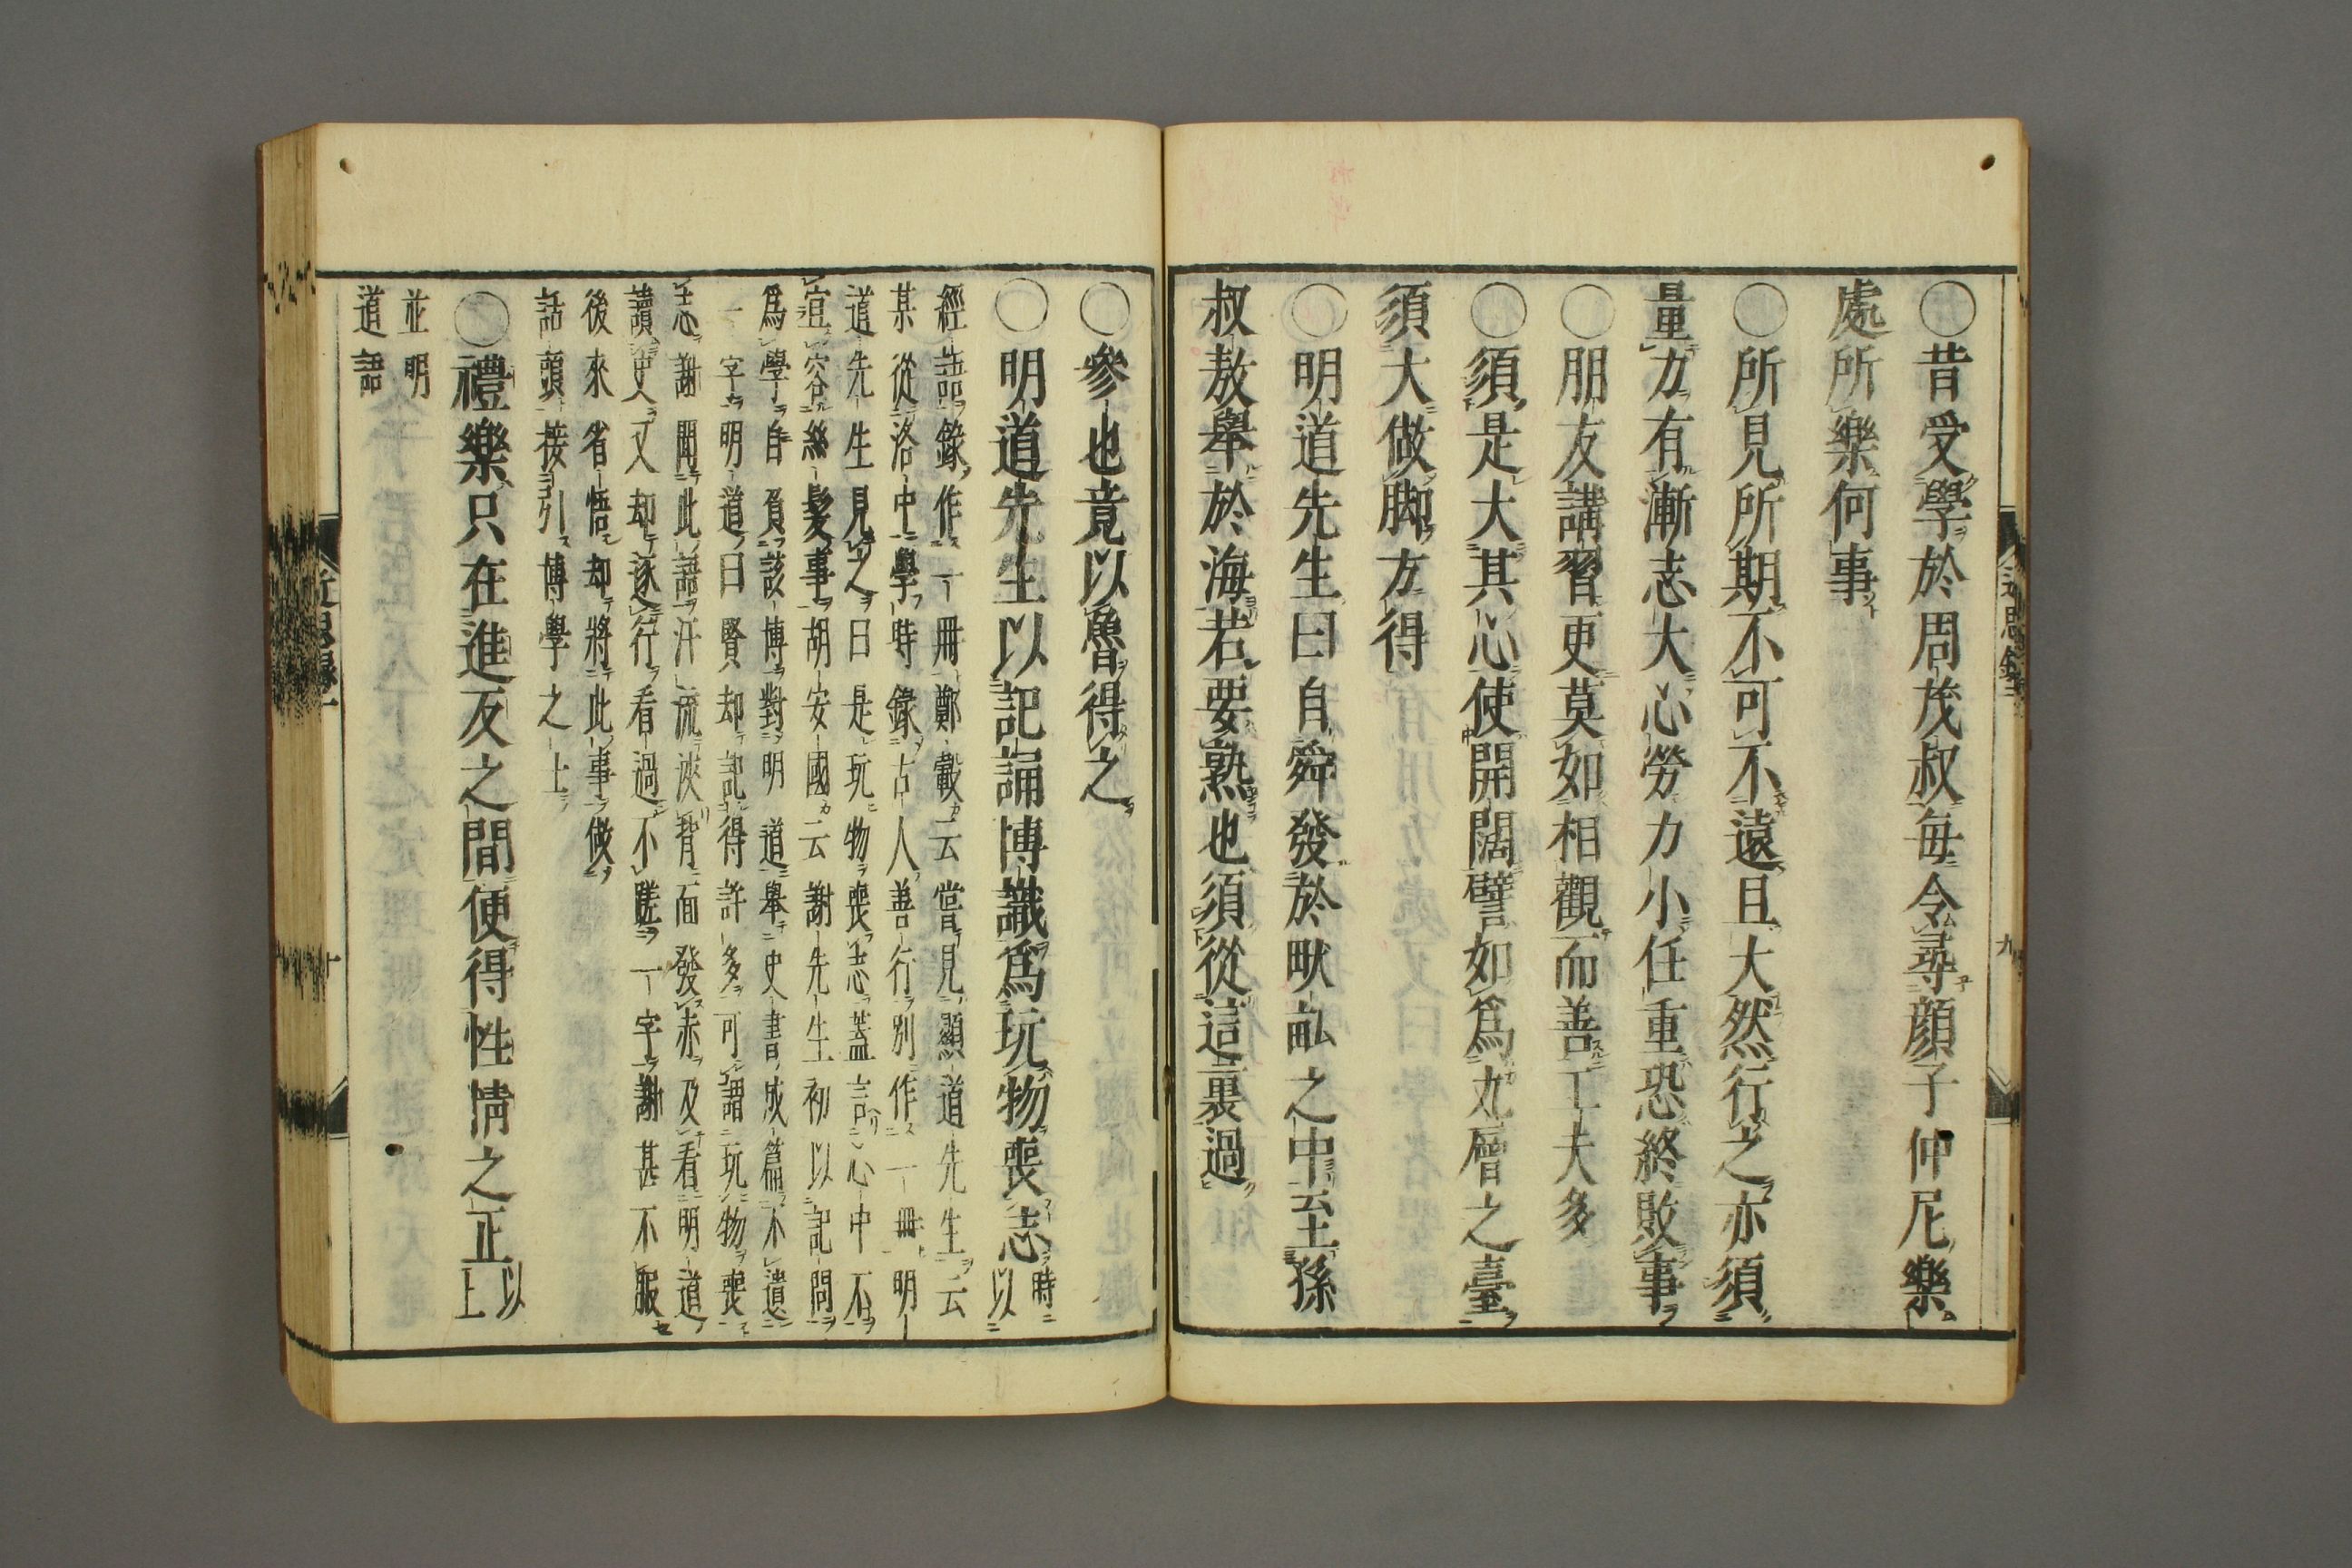 〇昔受學於周茂叔每令尋顔子仲尼樂
處所樂何事
〇所見所期不可不遠且大然行之亦須
量力有漸志大心勞力小任重恐終敗事
〇朋友講習更莫如相觀而善工夫多
〇須是大其心使開闊譬如爲九層之臺
須大做脚方得
〇明道先生曰自舜發於畎畝之中至孫
叔敖舉於海若要熟也須從這裏過
〇參也竟以魯得之
〇明道先生以記誦博識爲玩物喪志時以
經語錄作一冊鄭轂云嘗見顯道先生云
某從洛中學時錄古人善行別作一冊明
道先生見之曰是玩物喪志蓋言心中不
宜容絲髮事胡安國云謝先生初以記問
爲學自負該博對明道舉史書成篇不遺
一字明道曰賢却記得許多可謂玩物喪
志謝聞此語汗流浹背面發赤及看明道
讀史又却逐行看過不蹉一字謝甚不服
後來省悟却將此事做
話頭接引博學之士
〇禮樂只在進反之間便得性情之正以上
並明
道語
近思錄二
九
十